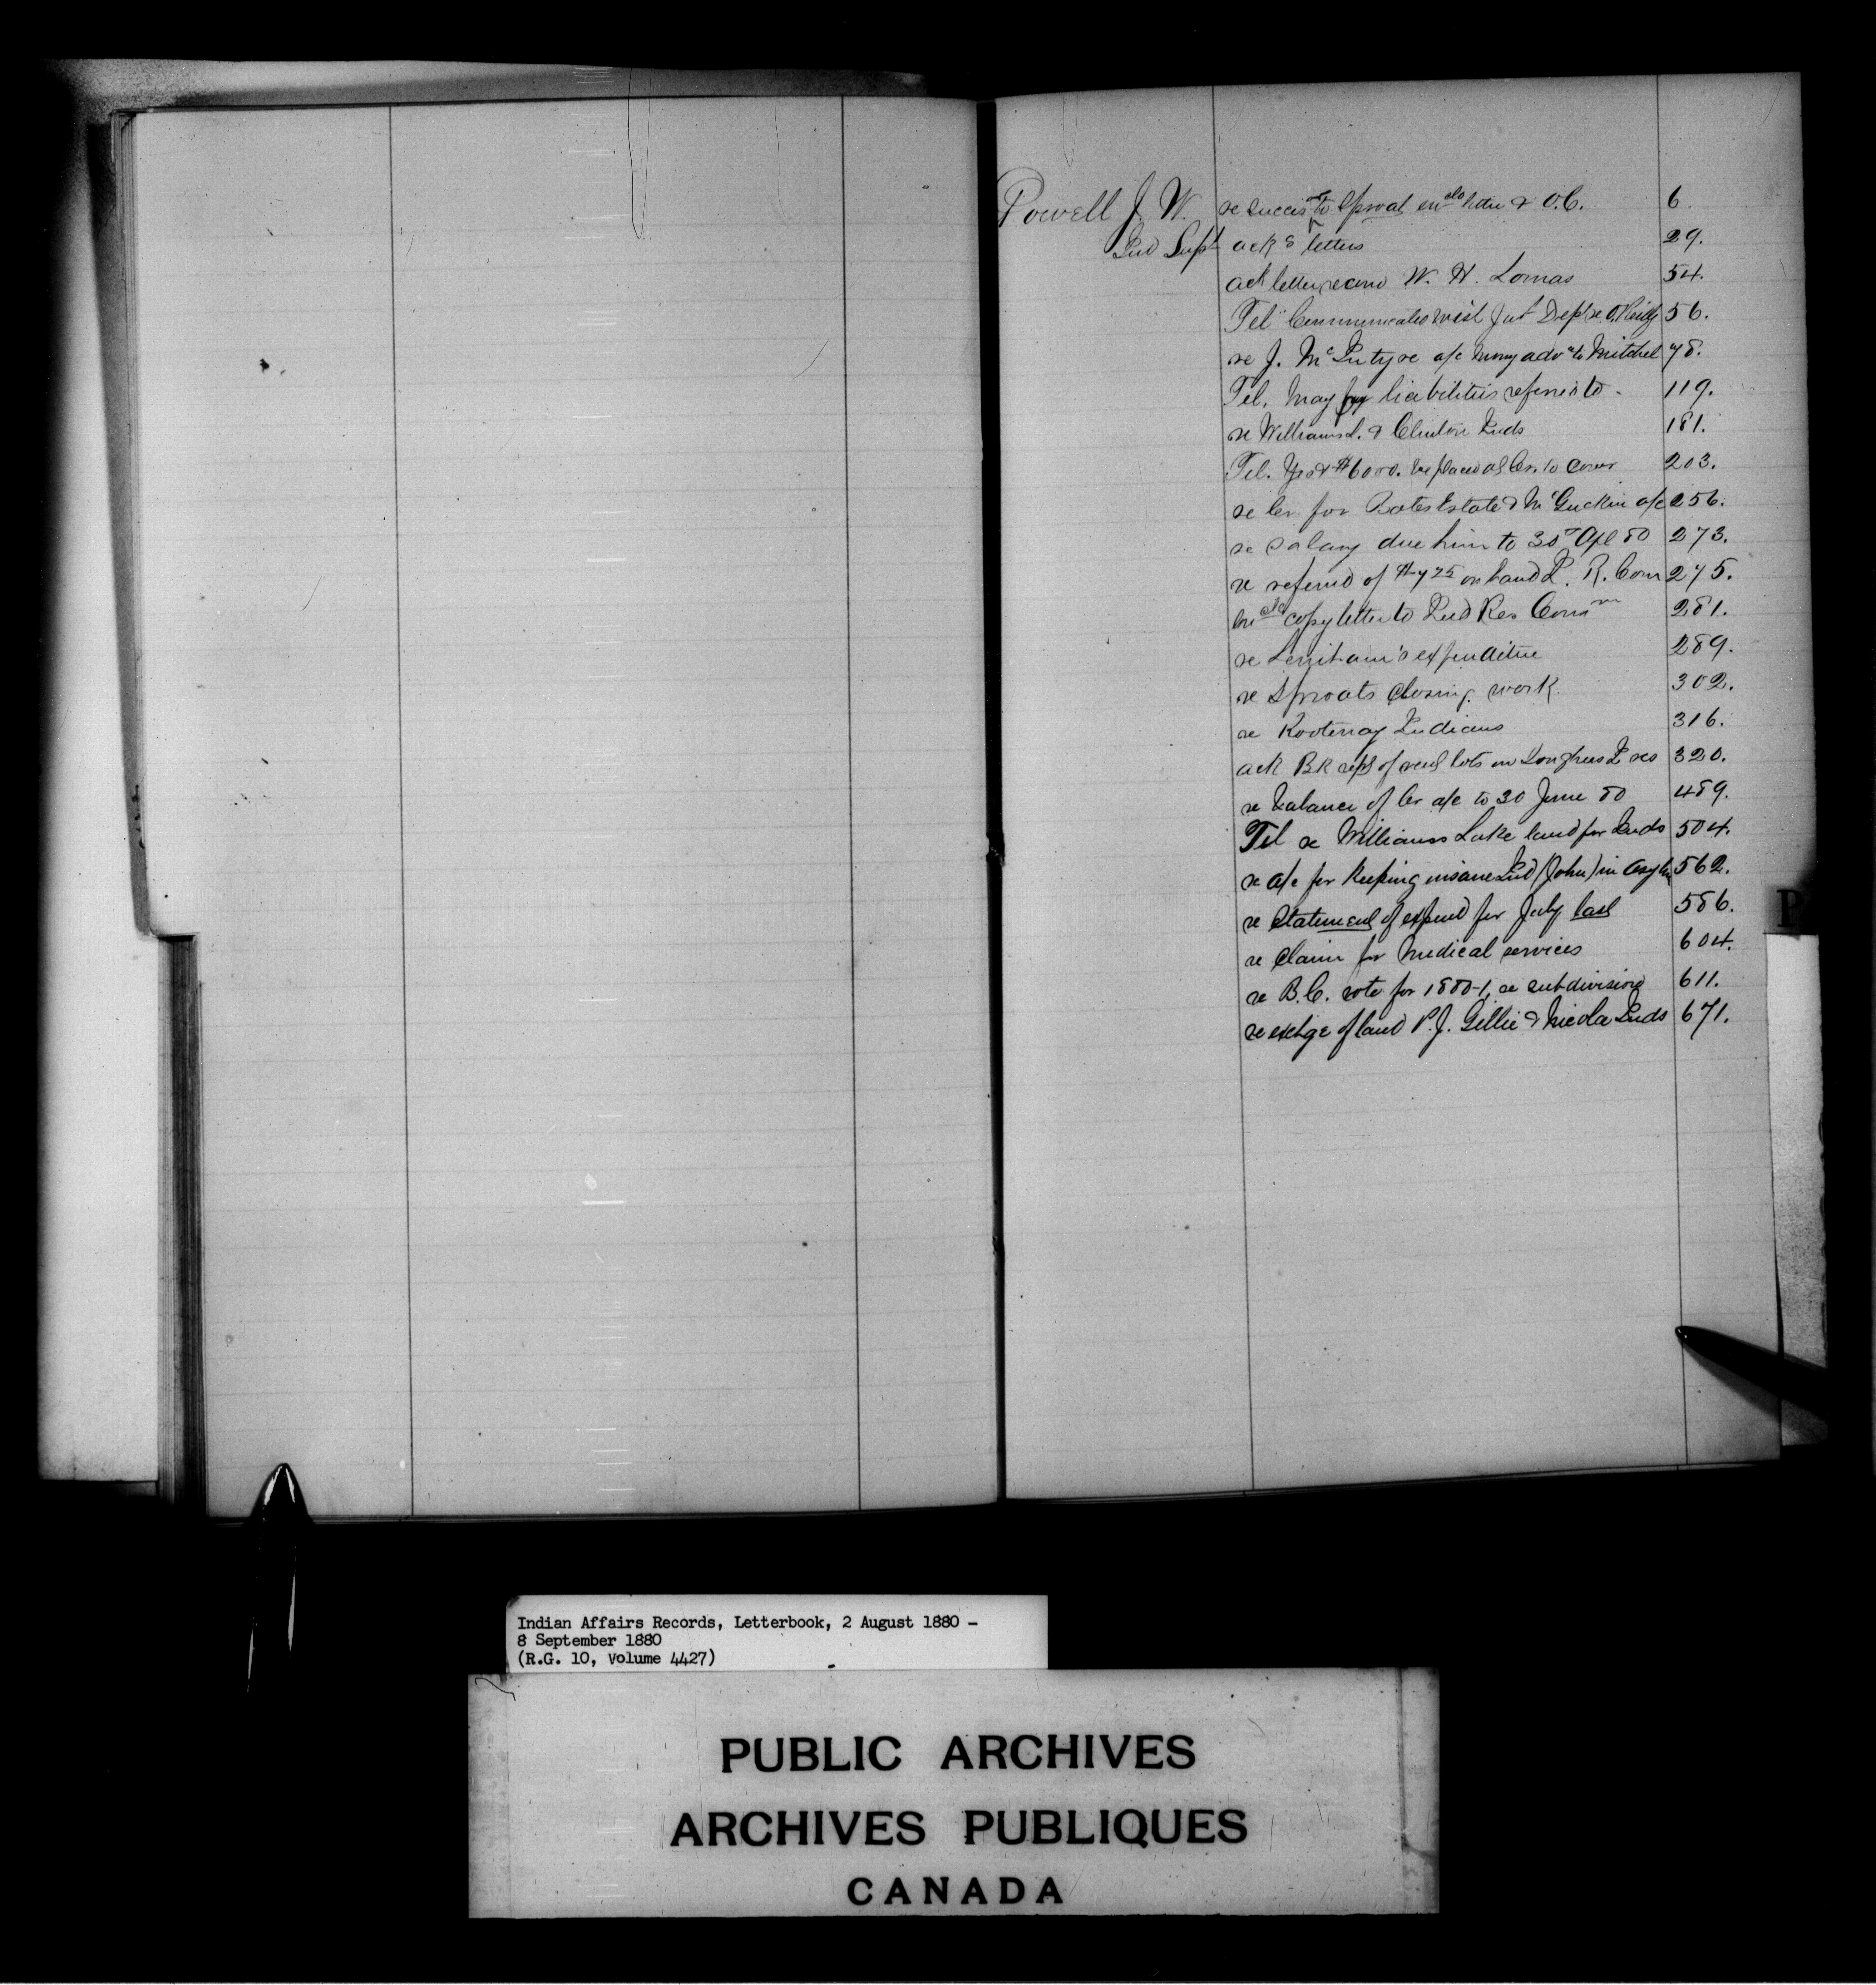 Powell J. W. re success^r to Sproat en^clo letter & O.C. 6.
Ind Supt ack^g letters 29.
ack letter recom W. H. Lomas 54.
Tel. Communicated with Int Dept re O'Reilly 56.
re J. McIntyre a/c money adv^d to Mitchel 78.
Tel. May pay liabilities referred to. 119.
re Williams L. & Clinton Inds 181.
Tel. Yes & $6000. be placed as Cr. to cover 203.
re Cr. for Bates Estate & McGuckin a/c 256.
re salary due him to 30th Apl 80 273.
re refund of on hand I. R. Com 275.
en^clo copy letter to Ind Res Comm^r 281.
re Lenihan's expenditure 289.
re Sproats closing work 302.
re Kootenay Indians 316.
ack Bk rept of rent lots on Songhees I res 320.
re balance of Cr a/c to 30 June 80 489.
Tel re Williams Lake land for Inds 504.
re a/c for keeping insane Ind (John) in asylm 562.
re statement of expend for July last 586.
re claim for medical services 604.
re B.C. vote for 1880-1, re subdivision 611.
re exchge of land P. J. Gillie & Nicola Inds 671.
P
Indian Affairs Records, Letterbook, 2 August 1880 –
8 September 1880
(R.G. 10, Volume 4427)
PUBLIC ARCHIVES
ARCHIVES PUBLIQUES
CANADA